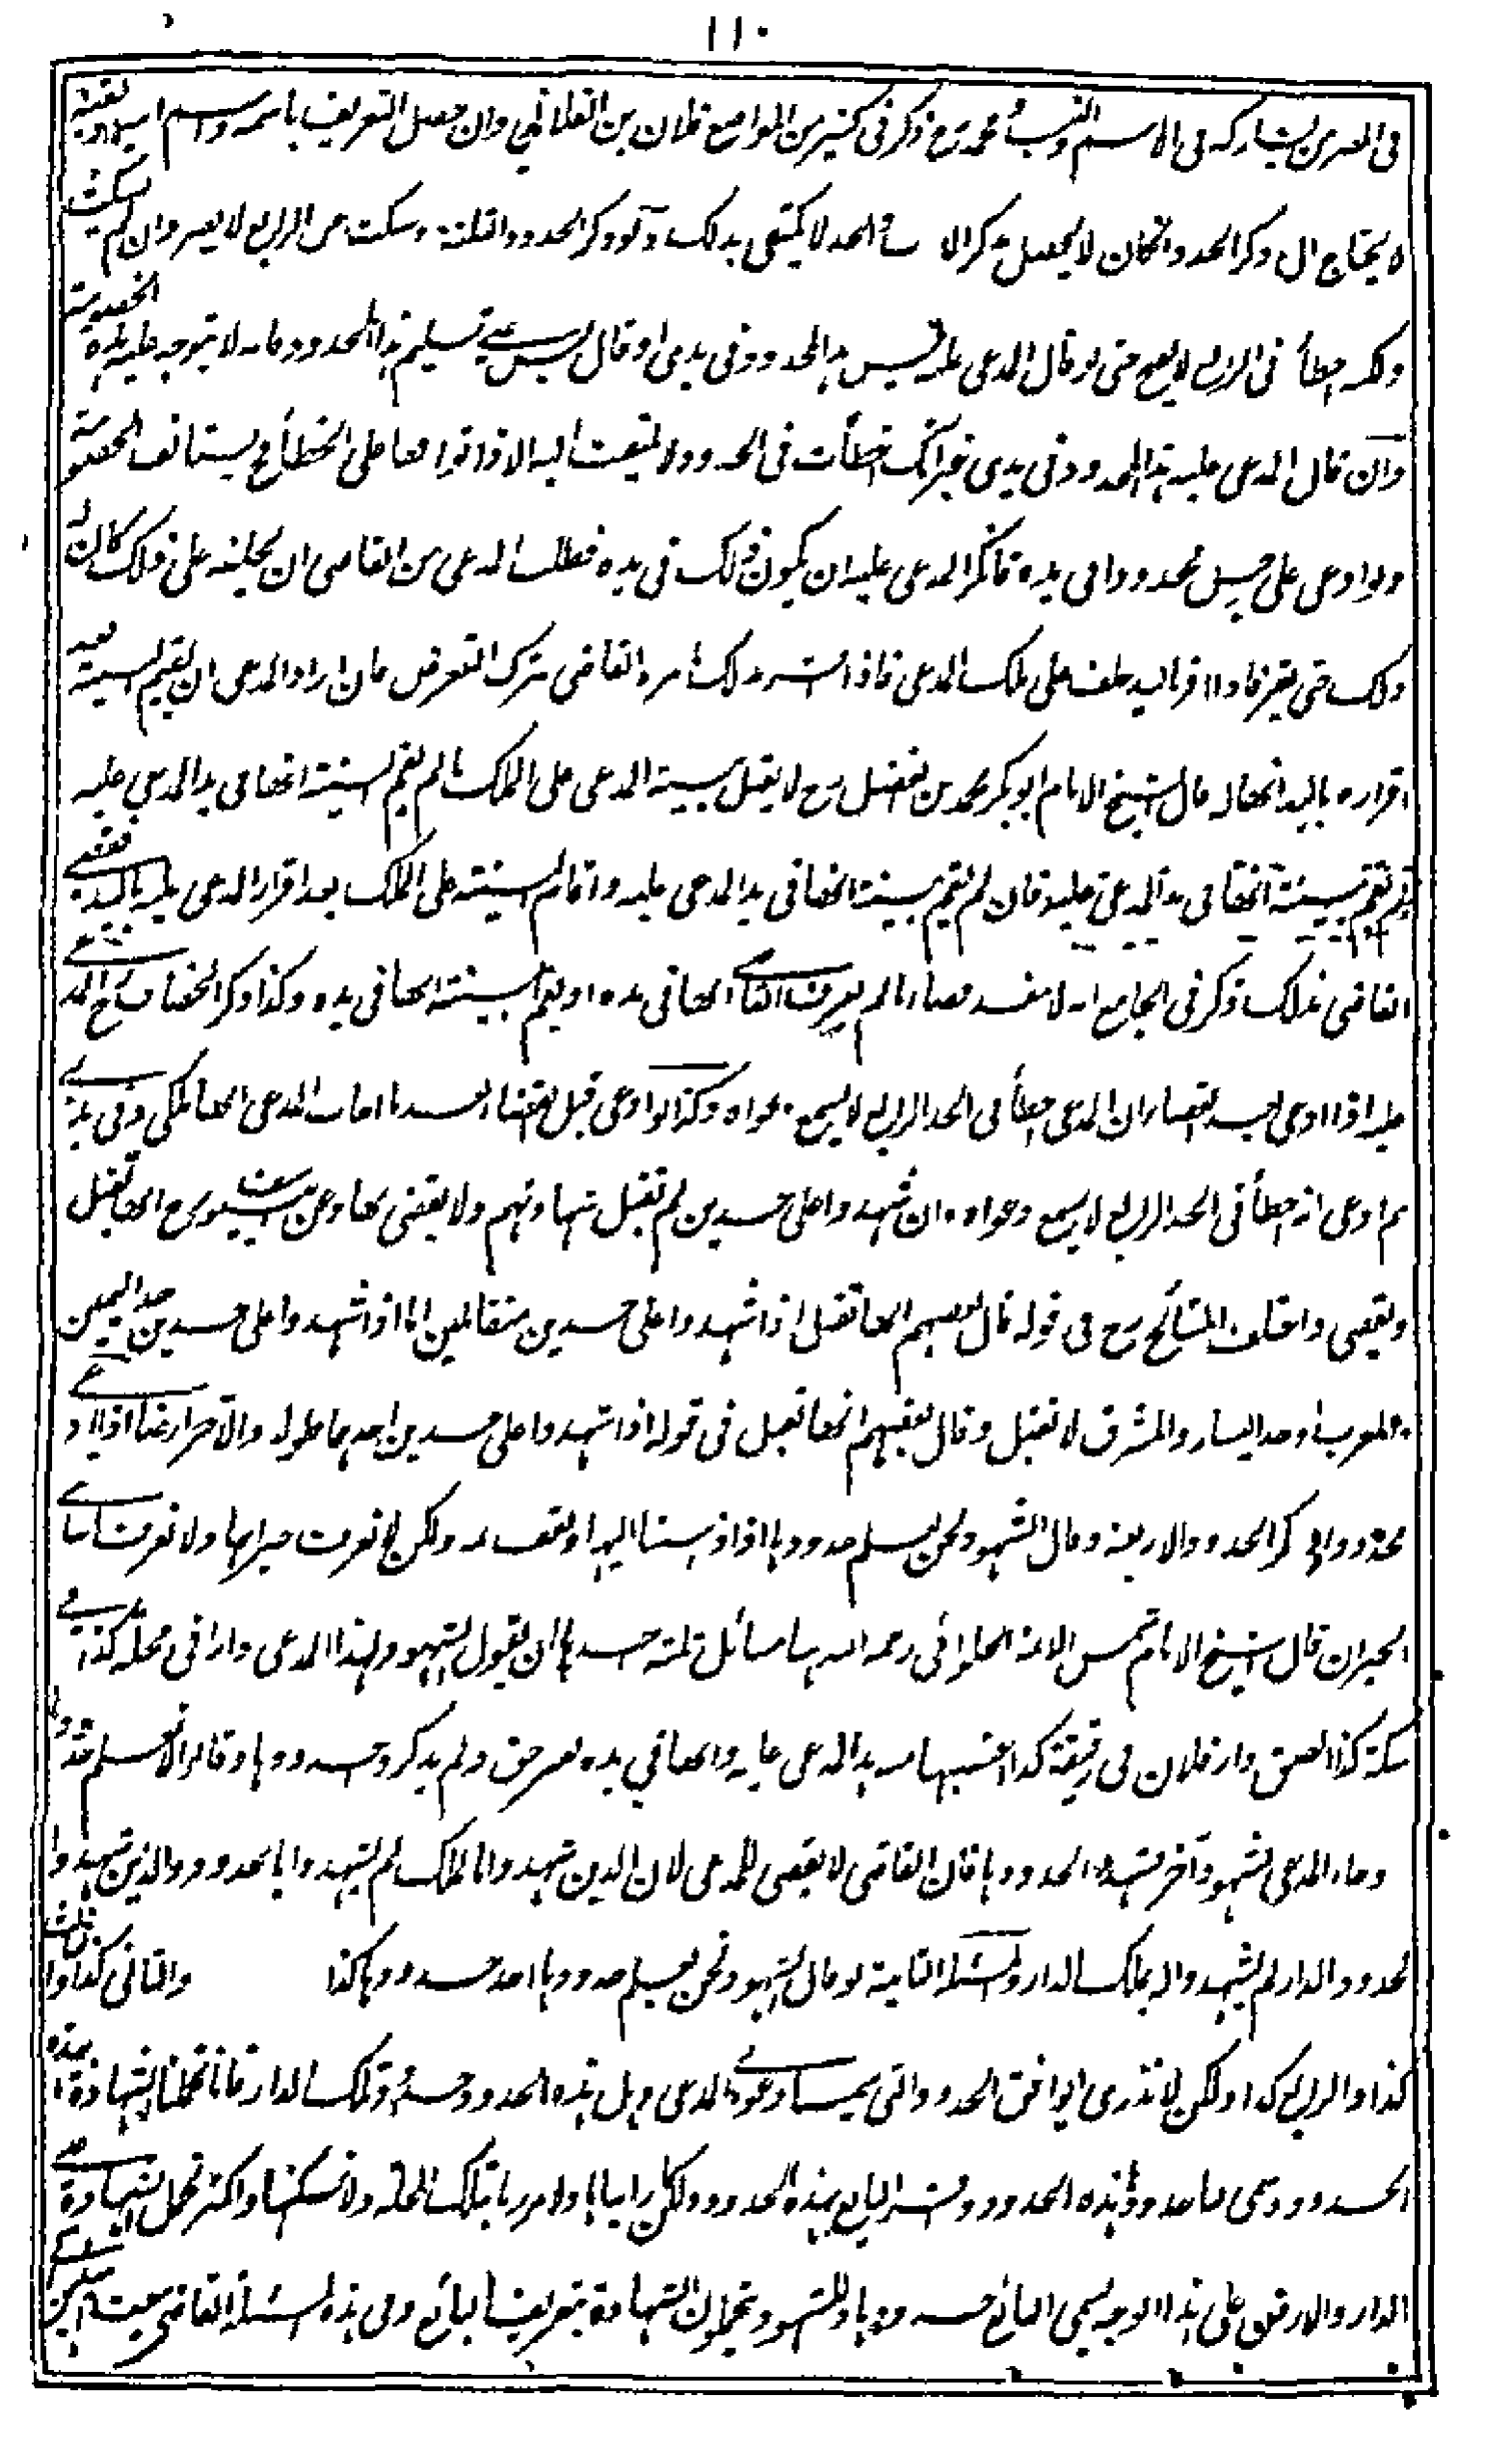 ١١٠
فى المصر من يشاركه فى الاسم والنسب محمد رح ذكر فى كثير من المواضع فلان بن الفلانى وان حصل التعريف باسمه واسم ابيه ولقبه
لا يحتاج الى ذكر الجد وان كان لا يحصل بذكر الاب الجد لا يكتفى بذلك ولو ذكر الحدود الثلثة وسكت عن الرابع لا يضر وان لم يسكت
ولكنه اخطأ فى الرابع لا يصح حتى لو قال المدعى عليه ليس هذا المحدود فى يدى او قال ليس على تسليم هذا المحدود فانه لا تتوجه عليه الخصومة
وان قال المدعى عليه هذا المحدود فى يدى غير انك اخطأت فى الحدود لا يلتفت اليه الا اذا توافقا على الخطأ فح يستانف الخصومة
ولو ادعى على رجل محدودا فى يده فانكر المدعى عليه ان يكون ذلك فى يده فطلب المدعى من القاضى ان يحلفه على ذلك كان له
ذلك حتى يقر فاذا اقر باليد حلف على ملك المدعى فاذا اقر بذلك امره القاضى بترك التعرض فان اراد المدعى ان يقيم البينة بعد
اقراره باليد انها له قال الشيخ الامام ابو بكر محمد بن الفضل رح لا يقبل بينة المدعى على الملك ما لم يقم البينة انها فى يد المدعى عليه
ثم يقيم بينة انها فى يد المدعى عليه فان لم يقم بينة انها فى يد المدعى عليه واقام البينة على الملك بعد اقرار المدعى عليه باليد فقضى
القاضى بذلك ذكر فى الجامع انه لا ينفذ قضاؤه ما لم يعرف القاضى انها فى يده او يقيم البينة انها فى يده وكذا ذكر الخصاف رح المدعى
عليه اذا ادعى بعد القضاء ان المدعى اخطأ فى الحد الرابع لا يسمع دعواه وكذا لو ادعى قبل القضاء بعد ما اجاب المدعى انها ملكى وفى يدى
ثم ادعى انه اخطأ فى الحد الرابع لا يسمع دعواه وان شهدوا على حدين لم تقبل شهادتهم ولا يقضى بها وعن ابى يوسف رح انها تقبل
ويقضى واختلف المشائخ رح فى قوله قال بعضهم انها تقبل اذا شهدوا على حدين متقابلين اما اذا شهدوا على حدين حد اليمين
والمغرب او حد اليسار والمشرق لا تقبل وقال بعضهم انها تقبل فى قوله اذا شهدوا على حدين احدهما طولا والآخر عرضا اذا ادعى
محدودا وذكر الحدود الاربعة وقال الشهود نحن نعلم حدودها اذا ذهبنا اليها ونقف ولكن لا نعرف جيرانها ولا نعرف اسامى
الجيران قال الشيخ الامام شمس الائمة الحلوائى رحمه الله هنا مسائل ثلثة احدها ان يقول الشهود لهذا المدعى دارا فى محلة كذا فى
سكة كذا لصيق دار فلان فى زقيقة كذا غصبها منه هذا المدعى عليه وانها فى يده بغير حق ولم يذكروا حدودها وقالوا لا نعلم حدودها
وجاء المدعى بشهود آخر يشهد الحدودها فان القاضى لا يقضى للمدعى لان الذين شهدوا بالملك لم يشهدوا بالحدود والذين شهدوا
لحدود الدار لم يشهدوا له بملك الدار والمسئلة الثانية لو قال الشهود نحن نعلم حدودها احد حدودها كذا والثانى كذا والثالث
كذا والرابع كذا ولكن لا ندرى ايوافق الحدود التى يسميها المدعى وهل هذه الحدود حدود تلك الدار فانا تحملنا الشهادة بهذه
الحدود وسمى لنا حدود هذه الحدود البايع بهذه الحدود ولكن ما راينا ولا مررنا بتلك المحلة ولا نسكنها واكثر تحمل الشهادة على
الدار والارض على هذا الوجه يسمى البائع حدودها والشهود يتحملون الشهادة بتعريف البائع وفى هذه المسئلة القاضى يبعث امينين